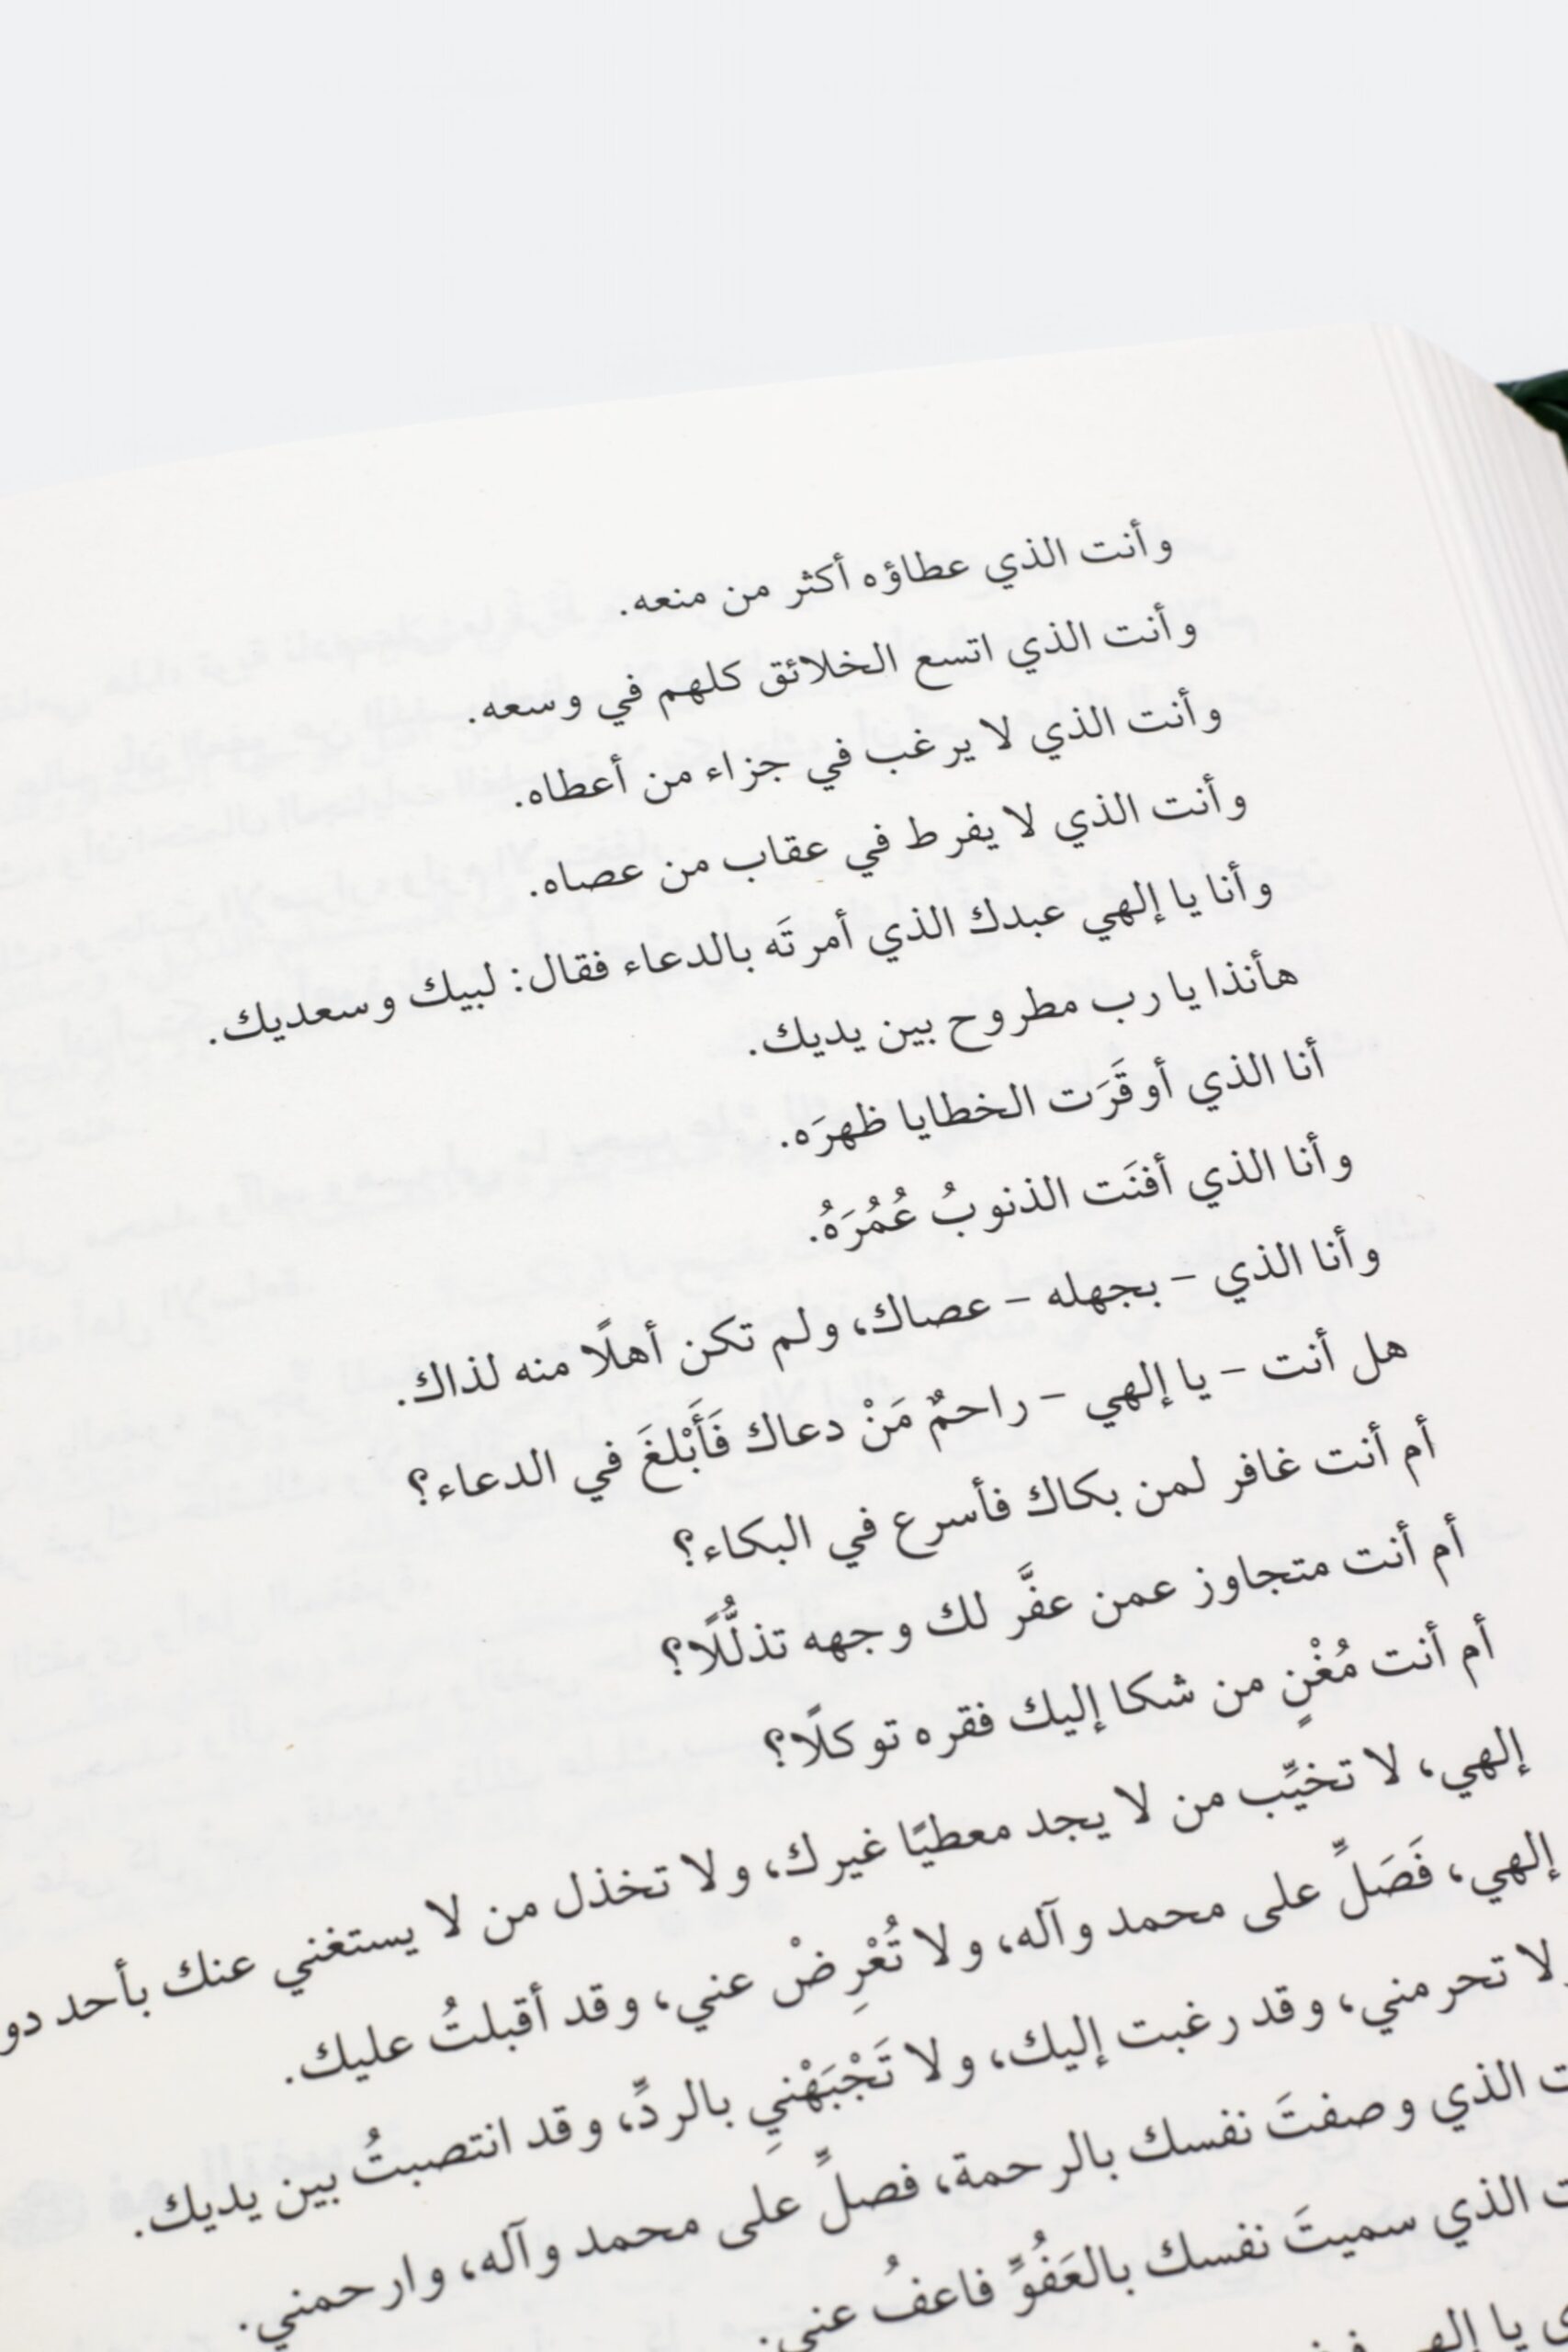 وأنت الذي عطاؤه أكثر من منعه.
وأنت الذي اتسع الخلائق كلهم في وسعه.
وأنت الذي لا يرغب في جزاء من أعطاه.
وأنت الذي لا يفرط في عقاب من عصاه.
وأنا يا إلهي عبدك الذي أمرتَه بالدعاء فقال: لبيك وسعديك.
هأنذا يا رب مطروح بين يديك.
أنا الذي أوقَرَت الخطايا ظهرَه.
وأنا الذي أفنَت الذنوبُ عُمُرَهُ.
وأنا الذي – بجهله – عصاك، ولم تكن أهلًا منه لذاك.
هل أنت – يا إلهي – راحمٌ مَنْ دعاك فَأَبْلغَ في الدعاء؟
أم أنت غافر لمن بكاك فأسرع في البكاء؟
أم أنت متجاوز عمن عفَّر لك وجهه تذلُّلًا؟
أم أنت مُغْنٍ من شكا إليك فقره توكلًا؟
إلهي، لا تخيِّب من لا يجد معطيًا غيرك، ولا تخذل من لا يستغني عنك بأحد
إلهي، فَصَلِّ على محمد وآله، ولا تُعْرِضْ عني، وقد أقبلتُ عليك.
لا تحرمني، وقد رغبت إليك، ولا تَجْبَهْنيِ بالردِّ، وقد انتصبتُ بين يديك.
الذي وصفتَ نفسك بالرحمة، فصلِّ على محمد وآله، وارحمني.
الذي سميتَ نفسك بالعَفُوِّ فاعفُ عني.